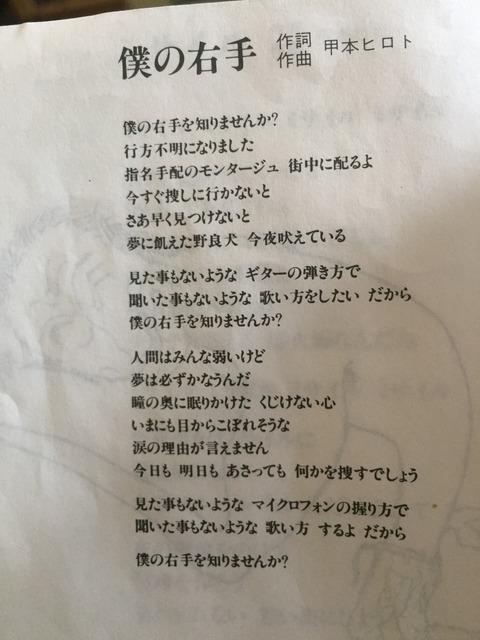 僕の右手 作詞 作曲 甲本ヒロト
僕の右手を知りませんか?
行方不明になりました
指名手配のモンタージュ 街中に配るよ
今すぐ捜しに行かないと
さあ早く見つけないと
夢に飢えた野良犬 今夜吠えている
見た事もないような ギターの弾き方で
聞いた事もないような 歌い方をしたい だから
僕の右手を知りませんか?
人間はみんな弱いけど
夢は必ずかなうんだ
瞳の奥に眠りかけた くじけない心
いまにも目からこぼれそうな
涙の理由が言えません
今日も 明日も あさっても 何かを捜すでしょう
見た事もないような マイクロフォンの握り方で
聞いた事もないような 歌い方 するよ だから
僕の右手を知りませんか?